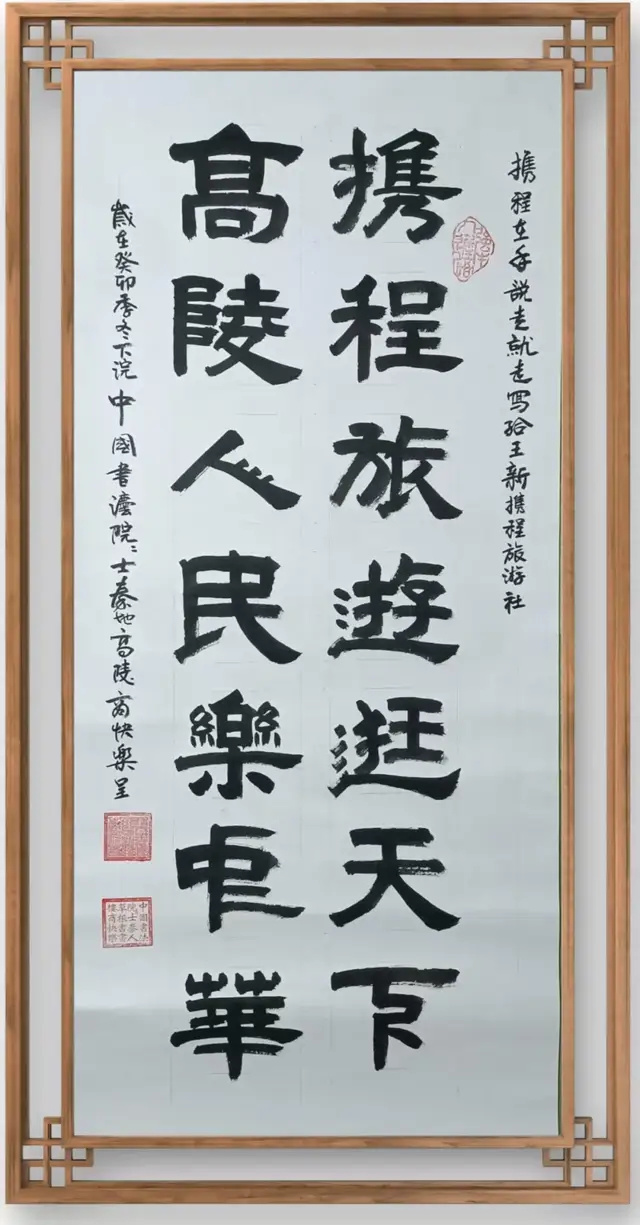 携程在手説走就走寫给王新携程旅游社
携程旅遊逛天下
髙陵人民樂中華
歲在癸卯季冬下浣中國書灋院〻士秦地高陵商快樂呈
中國書法
院士秦人